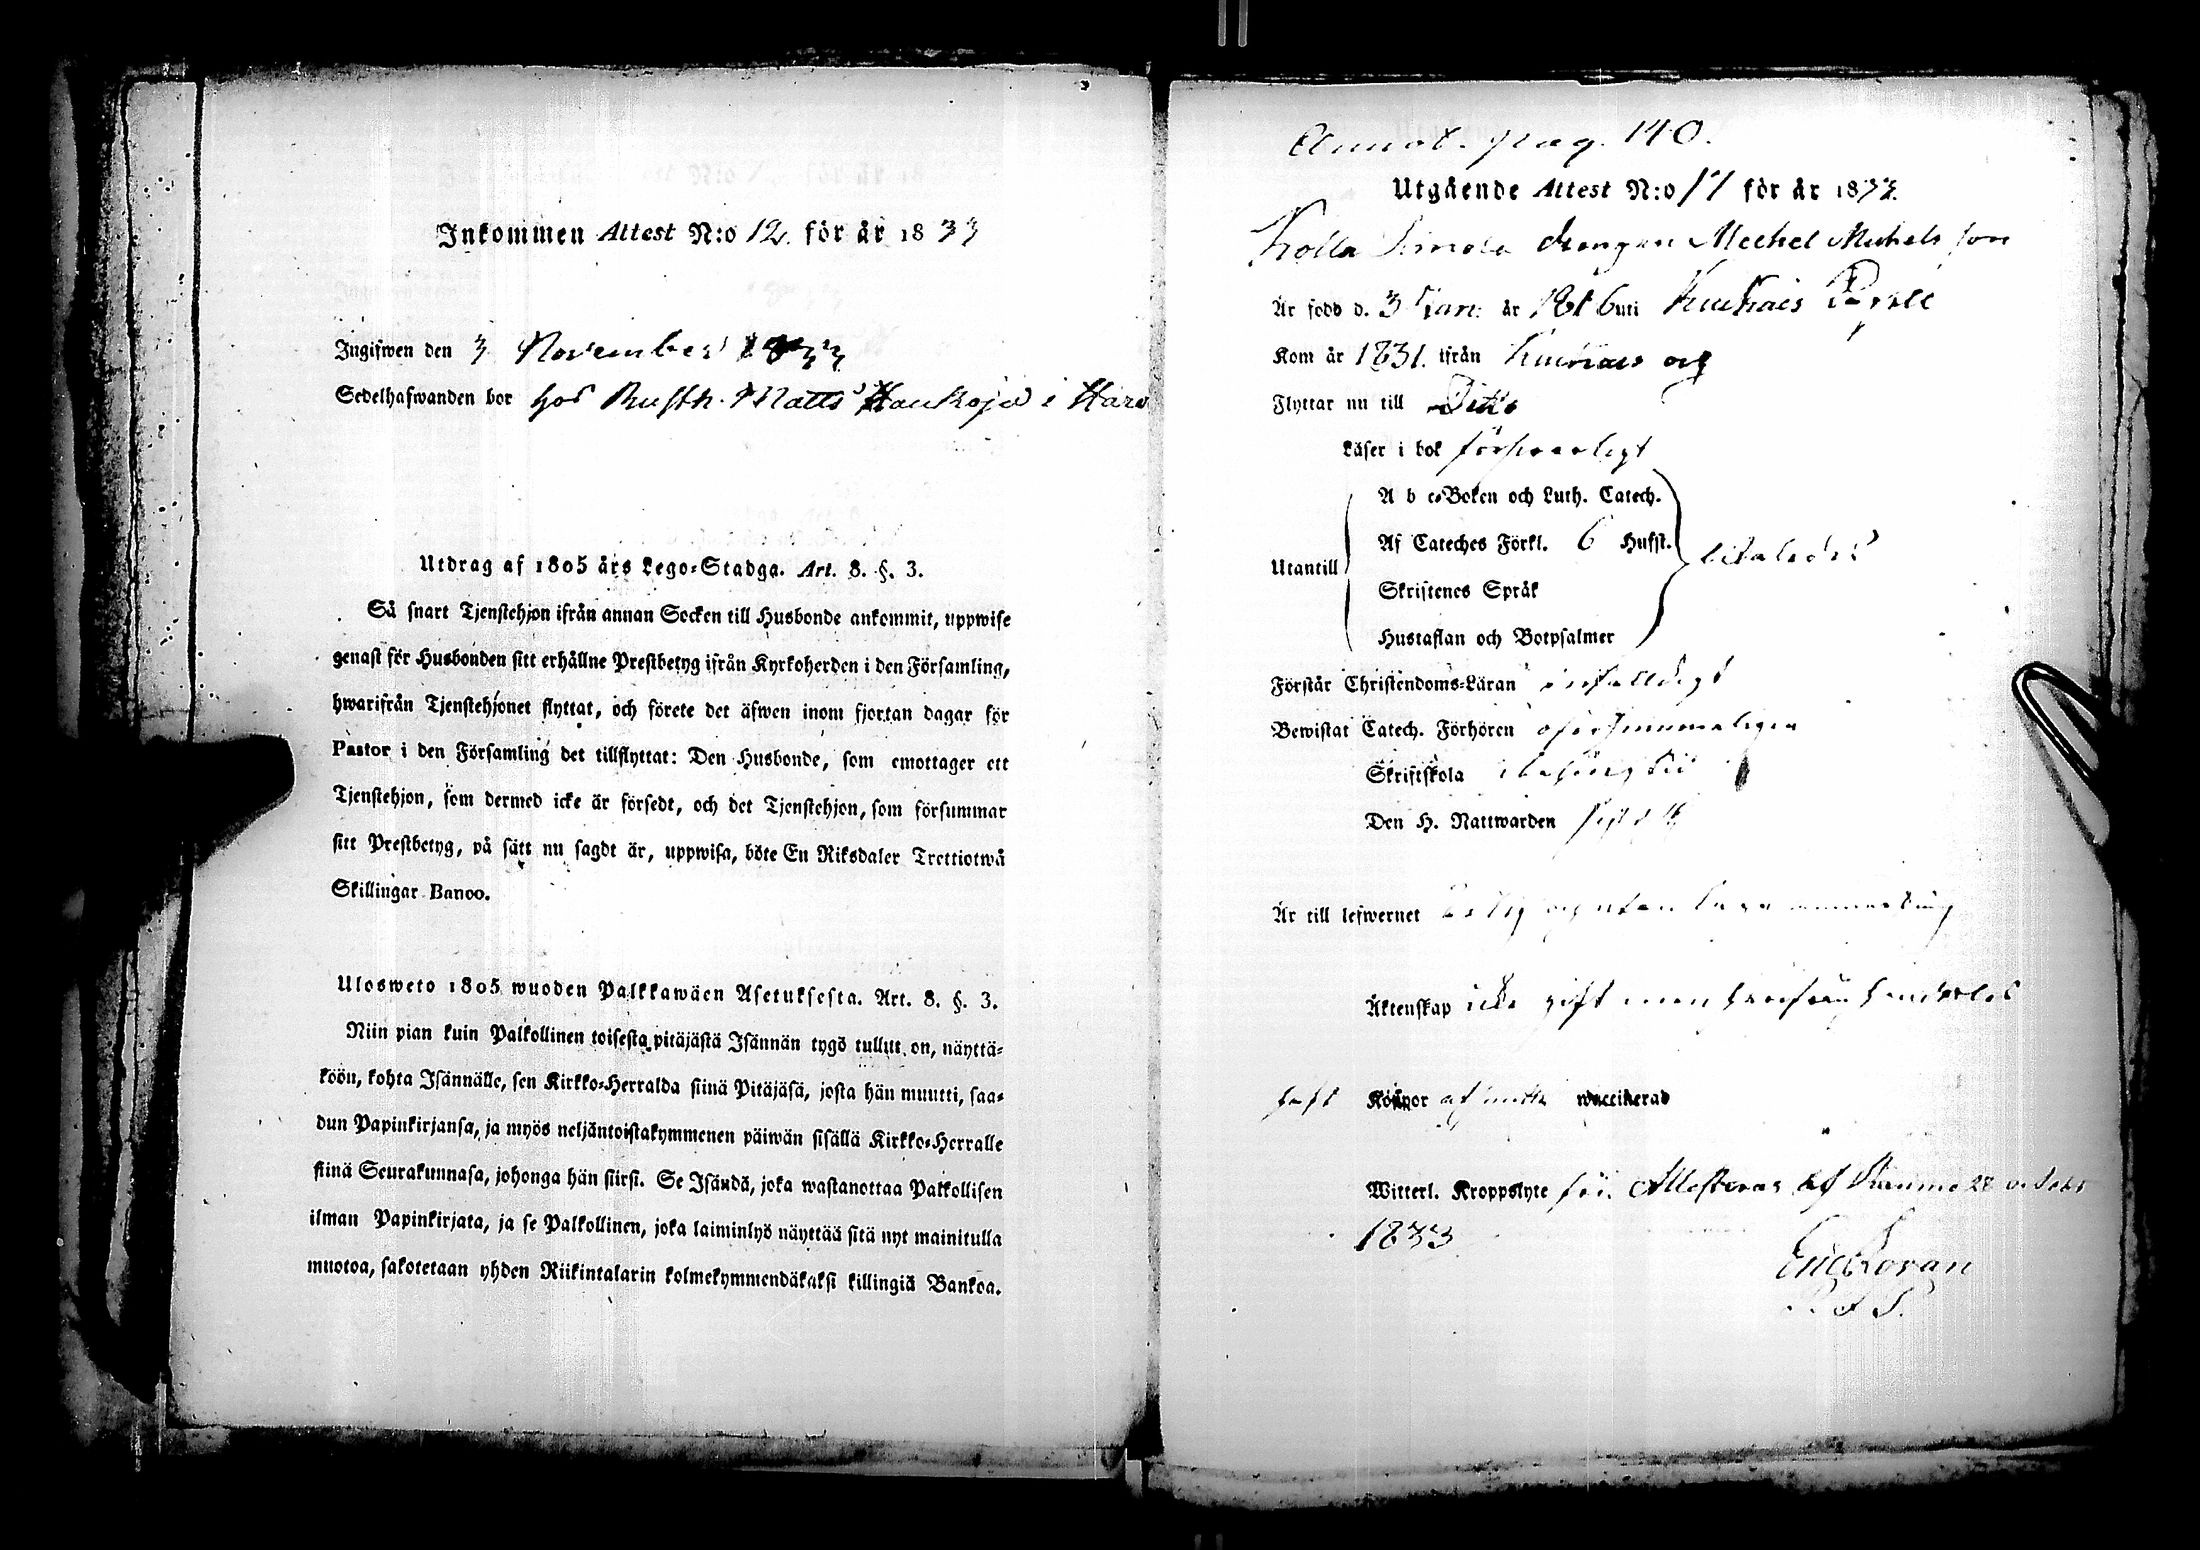 Inkommen Attest N:o 12. för år 1833
Ingifwen den 3 November 1833
Sedelhafwanden bor hos Rusth. Matts Haukoja i Haro
Utdrag af 1805 års Lego-Stadga. Art. 8. §. 3.
Så snart Tjenstehjon ifrån annan Socken till Husbonde ankommit, uppwise
genast för Husbonden sitt erhållne Prestbetyg ifrån Kyrkoherden i den Församling,
hwarifrån Tjenstehjonet flyttat, och förete det äfwen inom fjortan dagar för
Pastor i den Församling det tillflyttat: Den Husbonde, som emottager ett
Tjenstehjon, som dermed icke är försedt, och det Tjenstehjon, som försummar
sitt Prestbetyg, på sätt nu sagdt är, uppwisa, böte En Riksdaler Trettiotwå
Skillingar Banco.
Ulosweto 1805 wuoden Palkkawäen Asetuksesta. Art. 8. §. 3.
Niin pian kuin Palkollinen toisesta pitäjästä Isännän tygö tullut on, näyttä-
köön, kohta Isännälle, sen Kirkko-Herralda siinä Pitäjäsä, josta hän muutti, saa-
dun Papinkirjansa, ja myös neljäntoistakymmenen päiwän sisällä Kirkko-Herralle
siinä Seurakunnasa, johonga hän siirsi. Se Isändä, joka wastanottaa Palkollisen
ilman Papinkirjata, ja se Palkollinen, joka laiminlyö näyttää sitä nyt mainitulla
muotoa, sakotetaan yhden Riikintalarin kolmekymmendäkaksi killingiä Bankoa.
Annot. pag. 140.
Utgående Attest N:o 17 för år 1833.
Kolla Simola drengen Michel Michelsson
Är född d. 3 Jan: år 1816 uti
Kom år 1831. ifrån och
Flyttar nu till
Läser i bok försvarligt
A b c-Boken och Luth. Catech.
Af Cateches Förkl. 6 Hufst.
Utantill
Skriftenes Språk
Hustaflan och Botpsalmer
Förstår Christendoms-Läran enfalldigt
Bewistat Catech. Förhören oförsummeligen
Skriftskola
Den H. Nattwarden
Är till lefwernet ärlig och utan anmärkning
Äktenskap icke gift men
haft Koppor af natur waccinerad
Witterl. Kroppslyte fri. Attesteras af Raumo 28 octobr
1833
Eric Sovan
P. L. S.